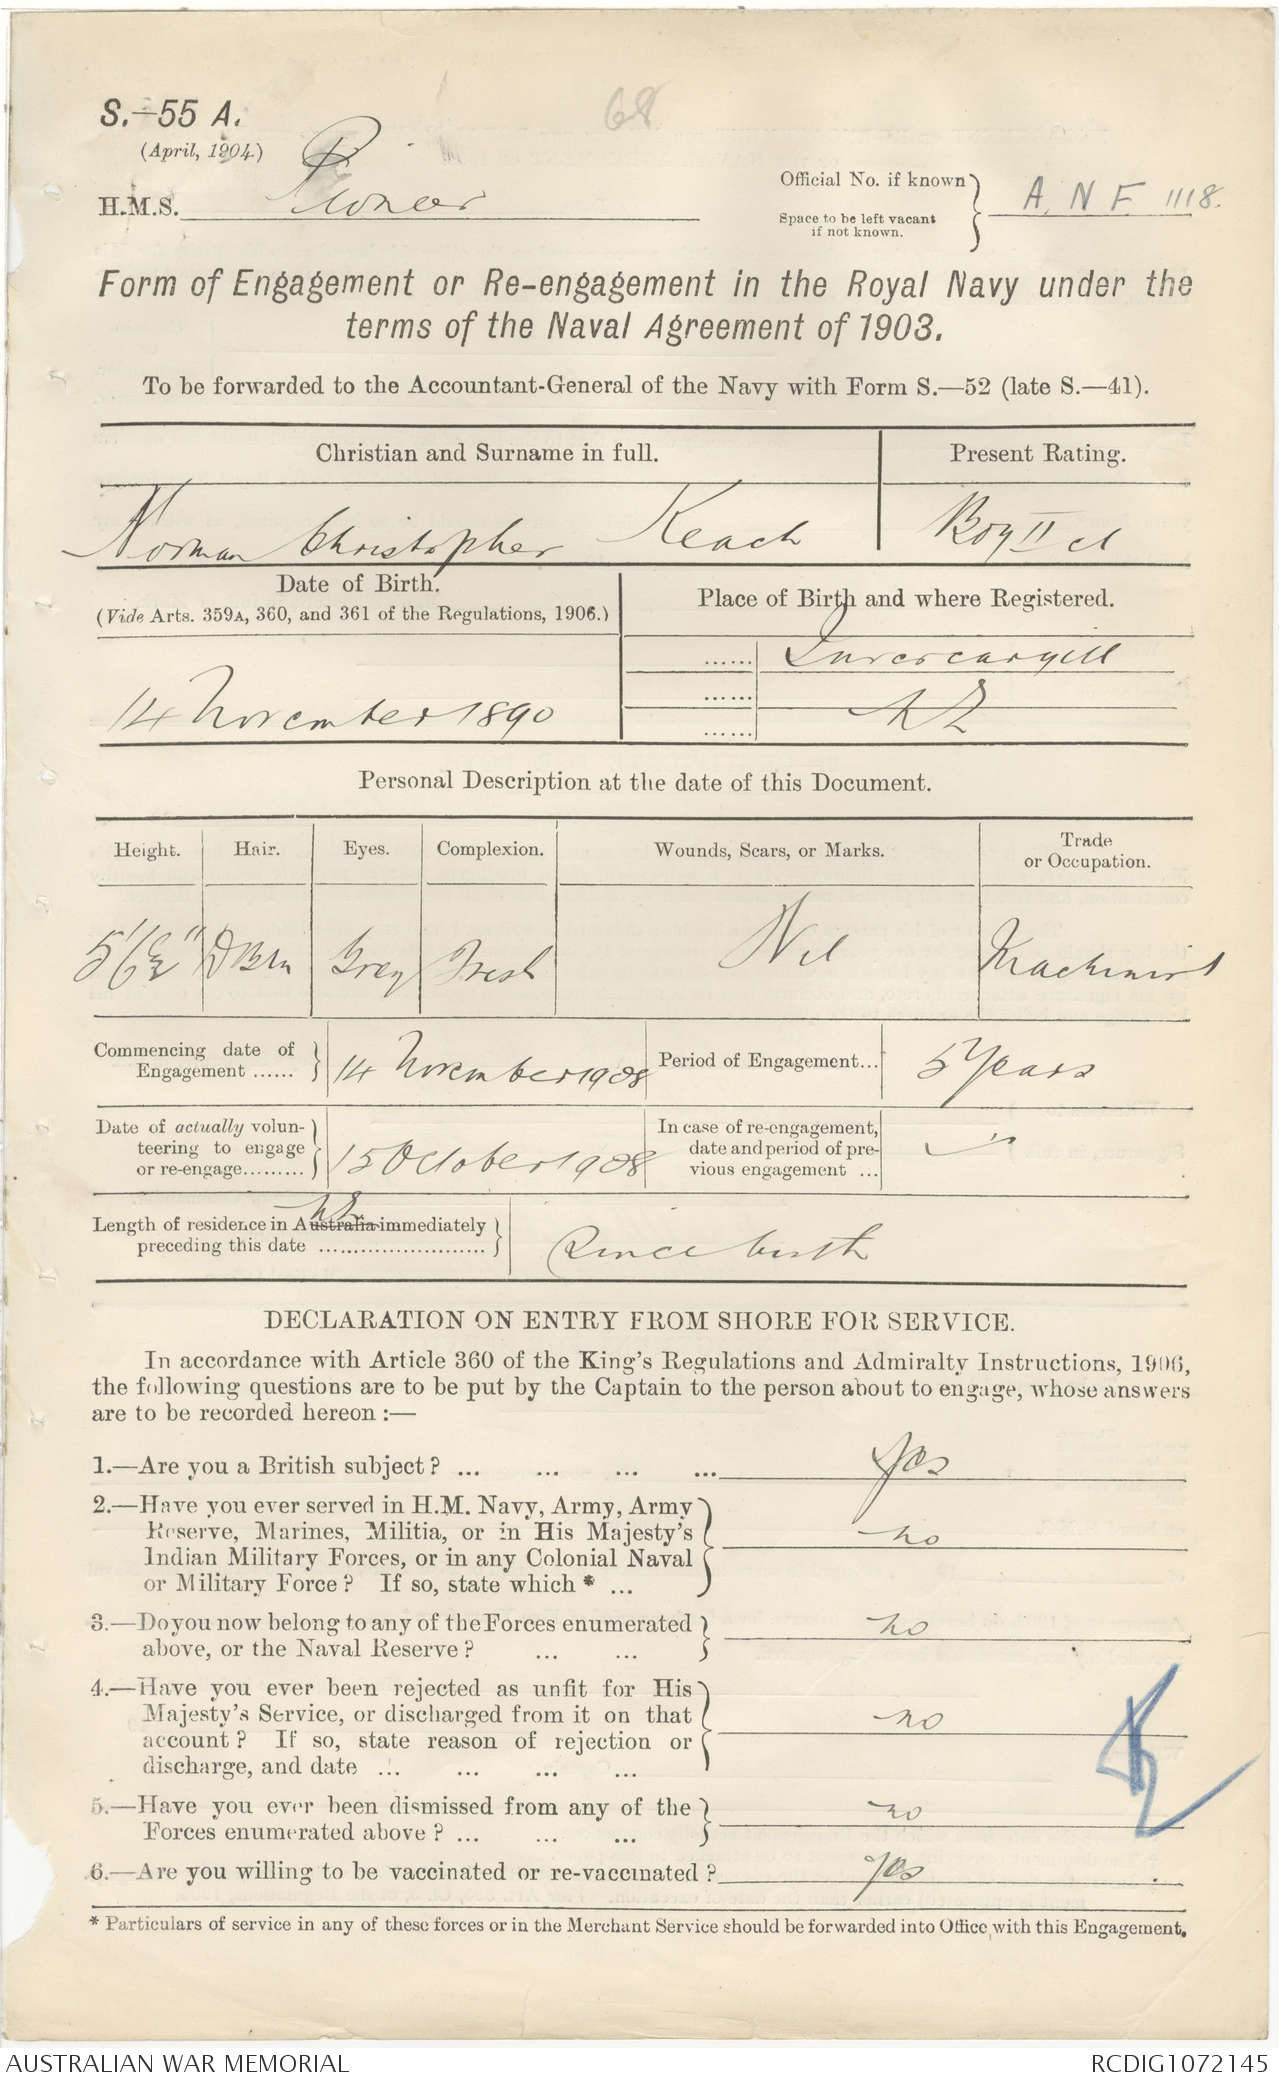 68
S.—55 A.
(April, 1904.)
H.M.S. Pioneer
Official No. if known
Space to be left vacant
if not known.
A. N F. 1118.
Form of Engagement or Re-engagement in the Royal Navy under the
terms of the Naval Agreement of 1903.
To be forwarded to the Accountant-General of the Navy with Form S.—52 (late S.—41).
Christian and Surname in full.
Present Rating.
Norman Christopher Keach
Boy II cl
Date of Birth.
(Vide Arts. 359A, 360, and 361 of the Regulations, 1906.)
Place of Birth and where Registered.
14 November 1890
...... Invercargill
...... NZ
......
Personal Description at the date of this Document.
Height.
Hair.
Eyes.
Complexion.
Wounds, Scars, or Marks.
Trade
or Occupation.
5' 6½"
D Brn
Grey
Fresh
Nil
Machinist
Commencing date of
Engagement ......
14 November 1908
Period of Engagement...
5 Years
Date of actually volun-
teering to engage
or re-engage.........
15 October 1908
In case of re-engagement,
date and period of pre-
vious engagement ...
NZ
Length of residence in Australia immediately
preceding this date ..........................
Since birth
DECLARATION ON ENTRY FROM SHORE FOR SERVICE.
In accordance with Article 360 of the King's Regulations and Admiralty Instructions, 1906,
the following questions are to be put by the Captain to the person about to engage, whose answers
are to be recorded hereon :—
1.—Are you a British subject? ... ... ... ... Yes
2.—Have you ever served in H.M. Navy, Army, Army
Reserve, Marines, Militia, or in His Majesty's
Indian Military Forces, or in any Colonial Naval
or Military Force? If so, state which * ...
no
3.—Do you now belong to any of the Forces enumerated
above, or the Naval Reserve? ... ...
no
4.—Have you ever been rejected as unfit for His
Majesty's Service, or discharged from it on that
account? If so, state reason of rejection or
discharge, and date ... ... ... ...
no
5.—Have you ever been dismissed from any of the
Forces enumerated above? ... ... ...
no
6.—Are you willing to be vaccinated or re-vaccinated? yes
* Particulars of service in any of these forces or in the Merchant Service should be forwarded into Office, with this Engagement.
AUSTRALIAN WAR MEMORIAL
RCDIG1072145